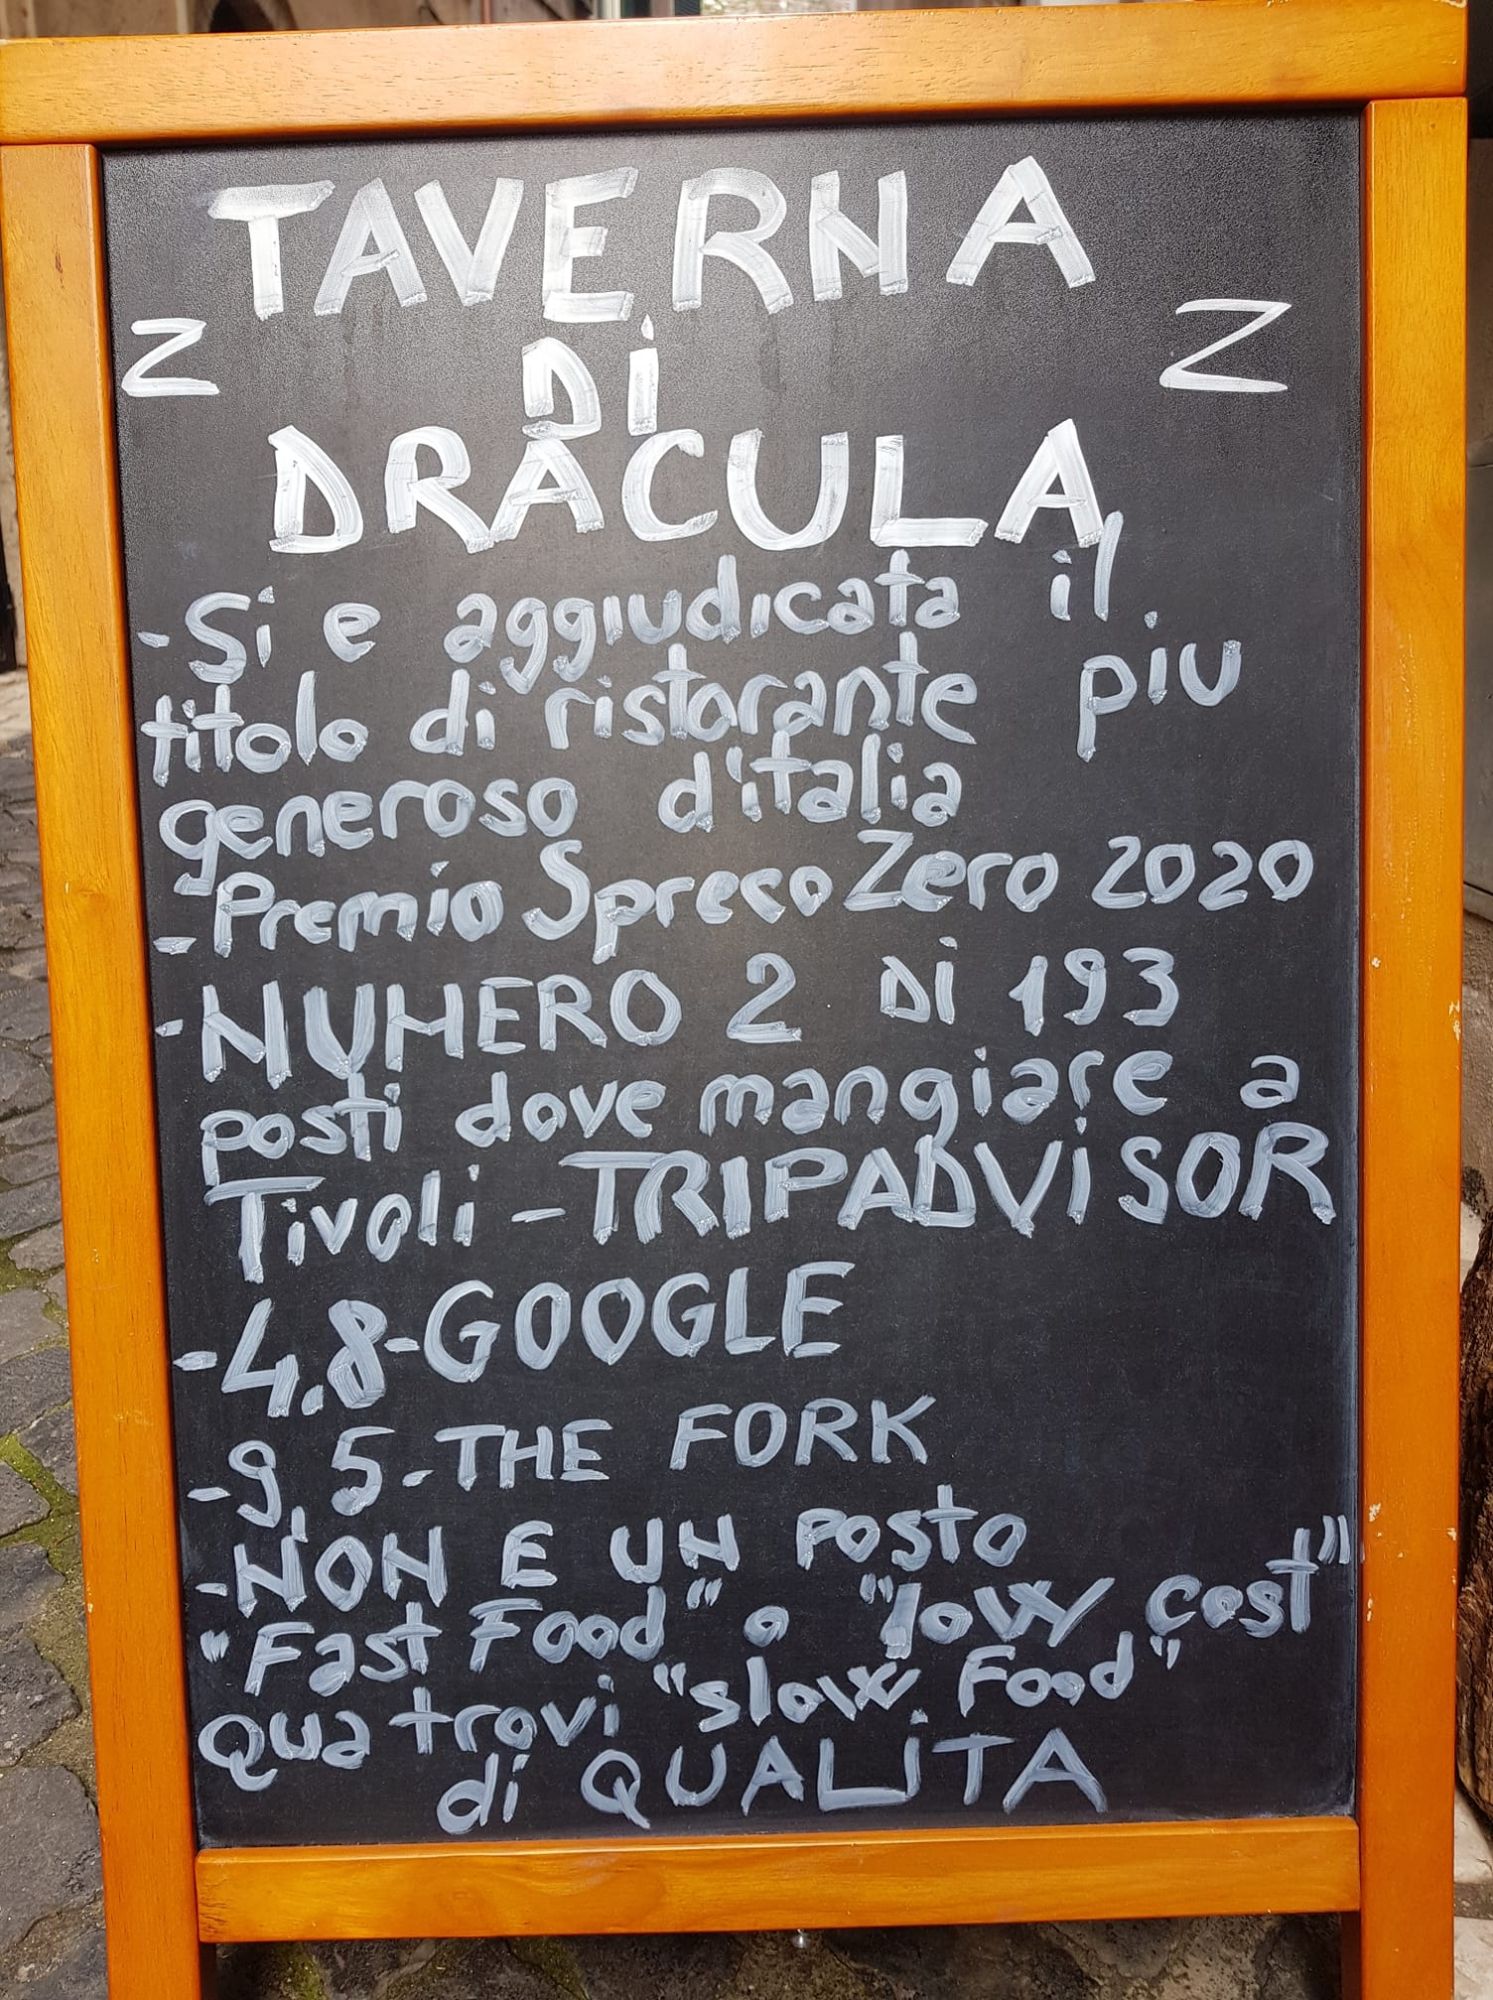 TAVERNA
Z DI Z
DRACULA
-Si e aggiudicata il.
titolo di ristorante piu
generoso d'italia
-Premio Spreco Zero 2020
-NUMERO 2 Di 193
posti dove mangiare a
Tivoli - TRIPADViSOR
-4.8-GOOGLE
-9,5-THE FORK
-NON E UN Posto
"Fast Food" o "low cost"
Qua trovi "slow Food"
di QUALiTA